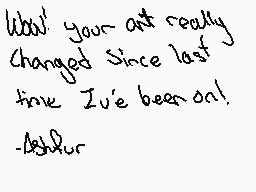 Wow! your art really
Changed Since last
time I've been on!